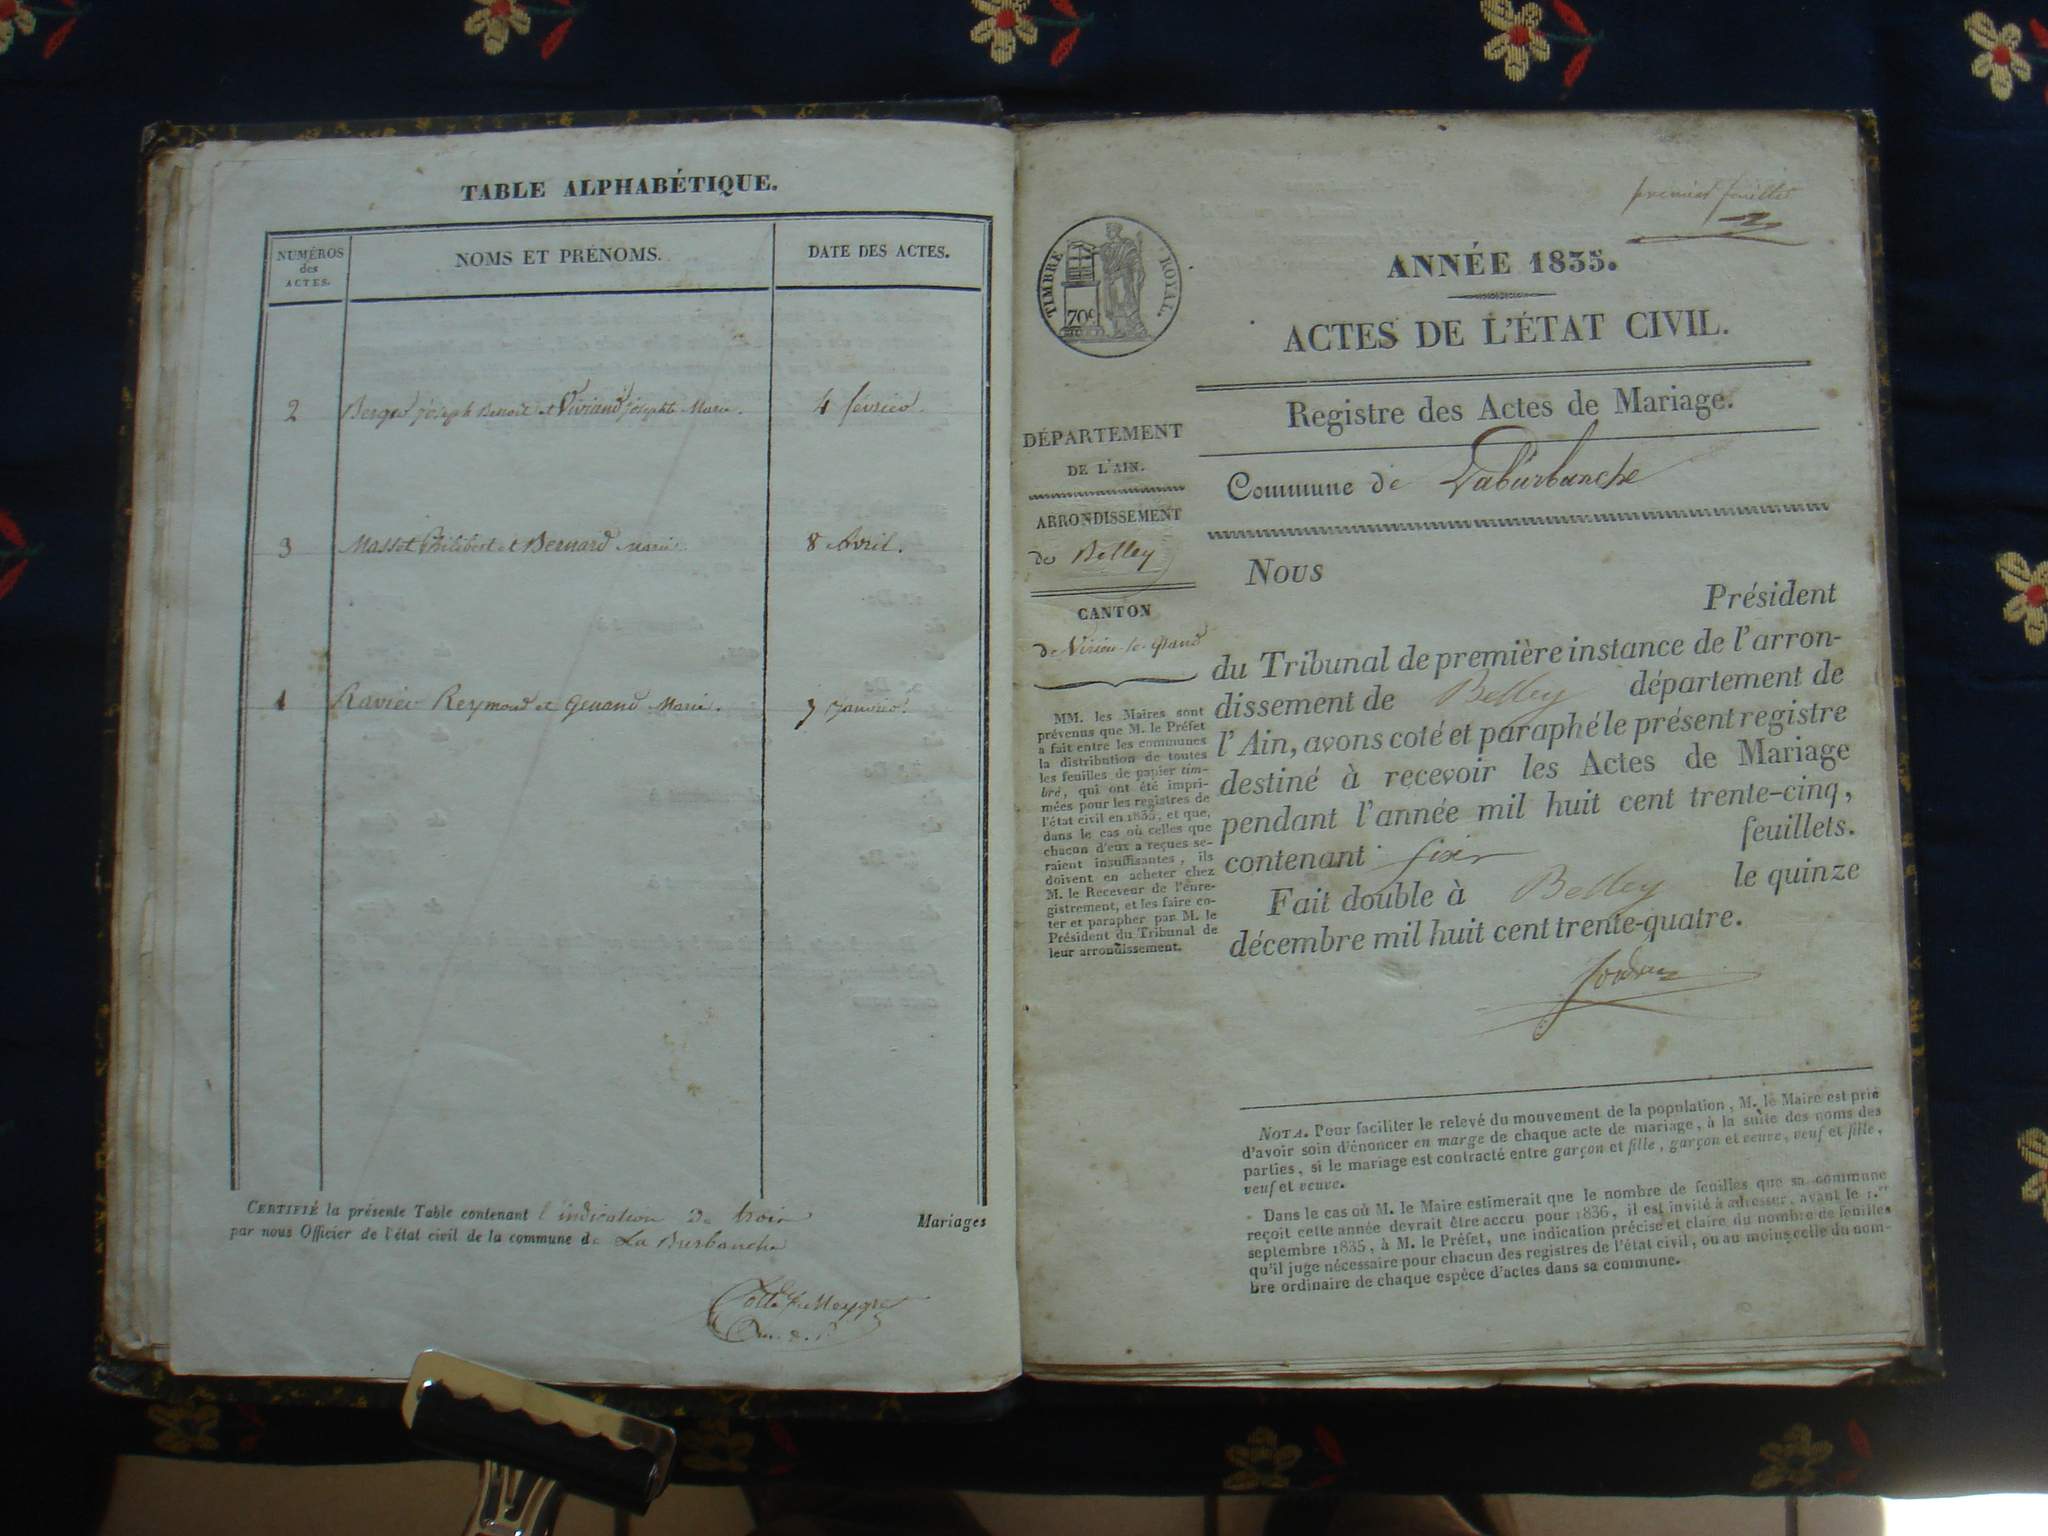 TABLE ALPHABÉTIQUE.
NUMÉROS
des
ACTES.
NOMS ET PRÉNOMS.
DATE DES ACTES.
2 Berger joseph Benoit et Viviand josephte Marie. 4 février.
3 Massot Philibert et Bernard Marie. 8 Avril.
1 Ravier Reymond et Genand Marie. 7 Janvier.
CERTIFIÉ la présente Table contenant l'indication De trois Mariages
par nous Officier de l'état civil de la commune de La Burbanche
premier feuillet
TIMBRE ROYAL.
70c
ANNÉE 1835.
ACTES DE L'ÉTAT CIVIL.
Registre des Actes de Mariage.
Commune de Laburbanche
DÉPARTEMENT
DE L'AIN.
ARRONDISSEMENT
de Belley
CANTON
de Virieu-le-Grand
MM. les Maires sont
prévenus que M. le Préfet
a fait entre les communes
la distribution de toutes
les feuilles de papier tim-
bré, qui ont été impri-
mées pour les registres de
l'état civil en 1835, et que,
dans le cas où celles que
chacun d'eux a reçues se-
raient insuffisantes, ils
doivent en acheter chez
M. le Receveur de l'enre-
gistrement, et les faire co-
ter et parapher par M. le
Président du Tribunal de
leur arrondissement.
Nous
Président
du Tribunal de première instance de l'arron-
dissement de Belley département de
l'Ain, avons coté et paraphé le présent registre
destiné à recevoir les Actes de Mariage
pendant l'année mil huit cent trente-cinq,
contenant six feuillets.
Fait double à Belley le quinze
décembre mil huit cent trente-quatre.
NOTA. Pour faciliter le relevé du mouvement de la population, M. le Maire est prié
d'avoir soin d'énoncer en marge de chaque acte de mariage, à la suite des noms des
parties, si le mariage est contracté entre garçon et fille, garçon et veuve, veuf et fille,
veuf et veuve.
Dans le cas où M. le Maire estimerait que le nombre de feuilles que sa commune
reçoit cette année devrait être accru pour 1836, il est invité à adresser, avant le 1.er
septembre 1835, à M. le Préfet, une indication précise et claire du nombre de feuilles
qu'il juge nécessaire pour chacun des registres de l'état civil, ou au moins celle du nom-
bre ordinaire de chaque espèce d'actes dans sa commune.